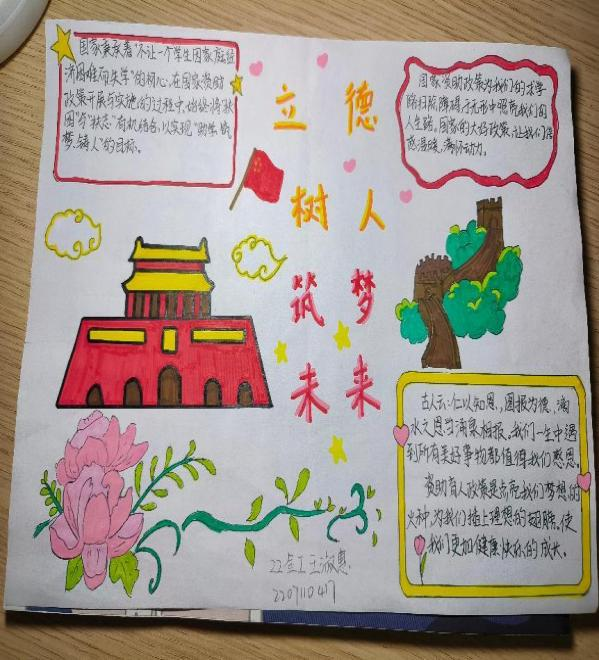 国家秉承着"不让一个学生因家庭经
济困难而失学"的初心,在国家资助
政策开展与实施的过程中,始终将"扶
困"与"扶志"有机结合,以实现"助学、筑
梦、铸人"的目标。
立德
树人
筑梦
未来
国家资助政策为我们的求学
路扫除障碍,于无形中照亮我们的
人生路。国家的大好政策,让我们倍
感温暖,满怀动力。
古人云:仁以知恩,图报为德,滴
水之恩当涌泉相报。我们一生中遇
到所有美好事物都值得我们感恩。
资助育人政策是点亮我们梦想的
火种,为我们插上理想的翅膀,使
我们更加健康快乐的成长。
22金工王淑惠
2207110417